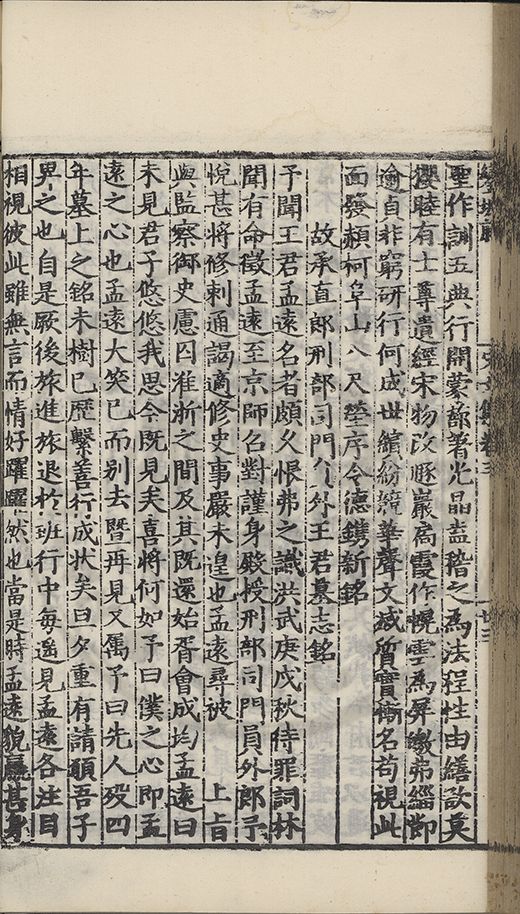 聖作訓五典行開蒙諒著光晶盍稽之為法程性由繕欲莫
攖睦有士尊遺經宋物改豚巖扃霞作幌雲為屏繳弗緇節
逾貞非窮研行何成世繽紛競華聲文滅質實慚名苟視此
面發赬柯阜山八尺塋序令德鐫新銘
故承直郎刑部司門員外王君墓志銘
予聞王君孟遠名者頗久恨弗之識洪武庚戌秋待罪詞林
聞有命徵孟遠至京師召對謹身殿授刑部司門員外郎予
悅甚將修刺通謁適修史事嚴未遑也孟遠尋被 上旨
與監察御史慮囚淮浙之間及其既還始胥會成均孟遠曰
未見君子悠悠我思今既見矣喜將何如予曰僕之心即孟
遠之心也孟遠大笑已而別去暨再見又属予曰先人歿四
年墓上之銘未樹已歷繫善行成狀矣旦夕重有請願吾子
畀之也自是厥後旅進旅退於班行中每邂見孟遠各注目
相視彼此雖無言而情好躍躍然也當是時孟遠貌羸甚身